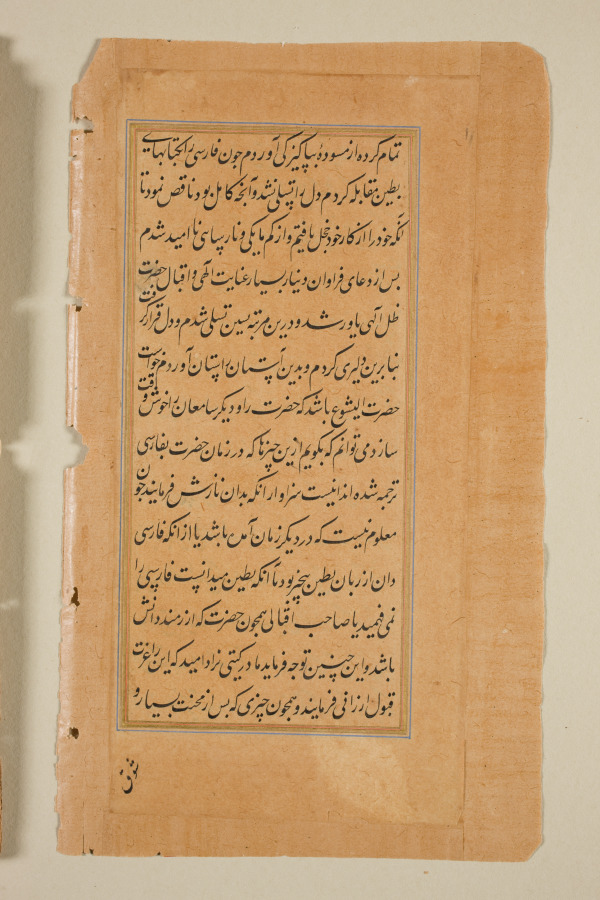 تمام کرده از مسوده بپاکیزگی آوردم چون فارسی را بکتابهای
بطین مقابله کردم دل را تسلی نشد و آنچه کامل بود ناقص نمود تا
آنکه خود را از کار خود خجل یافتم و از کم مایگی و نارسایی ناامید شدم
پس از دعای فراوان و نیاز بسیار عنایت الهی و اقبال حضرت
ظل الهی یاور شد و درین مرتبه پسین تسلی شدم و دل قرار گرفت
بنابرین دلیری کردم و بدین آستان آوردم
حضرت ایشوع باشد که حضرت را و دیگر سامعان را خوش وقت
سازد می توانم که بگویم ازین چیزها که در زمان حضرت بفارسی
ترجمه شده اند این است سزاوار آنکه بدان نازش فرمایند چون
معلوم نیست که در دیگر زمان آمدن باشد یا از آنکه فارسی
دان از زبان بطین بیخبر بود تا آنکه بطین میدانست فارسی را
نمی فهمید یا صاحب اقبالی همچون حضرت که ارزمند دانش
باشد و این چنین توجه فرماید مادر گیتی نزاد امید که این را عزت
قبول ارزانی فرمایند و همچون چیزی که پس از محنت بسیار و
شوق